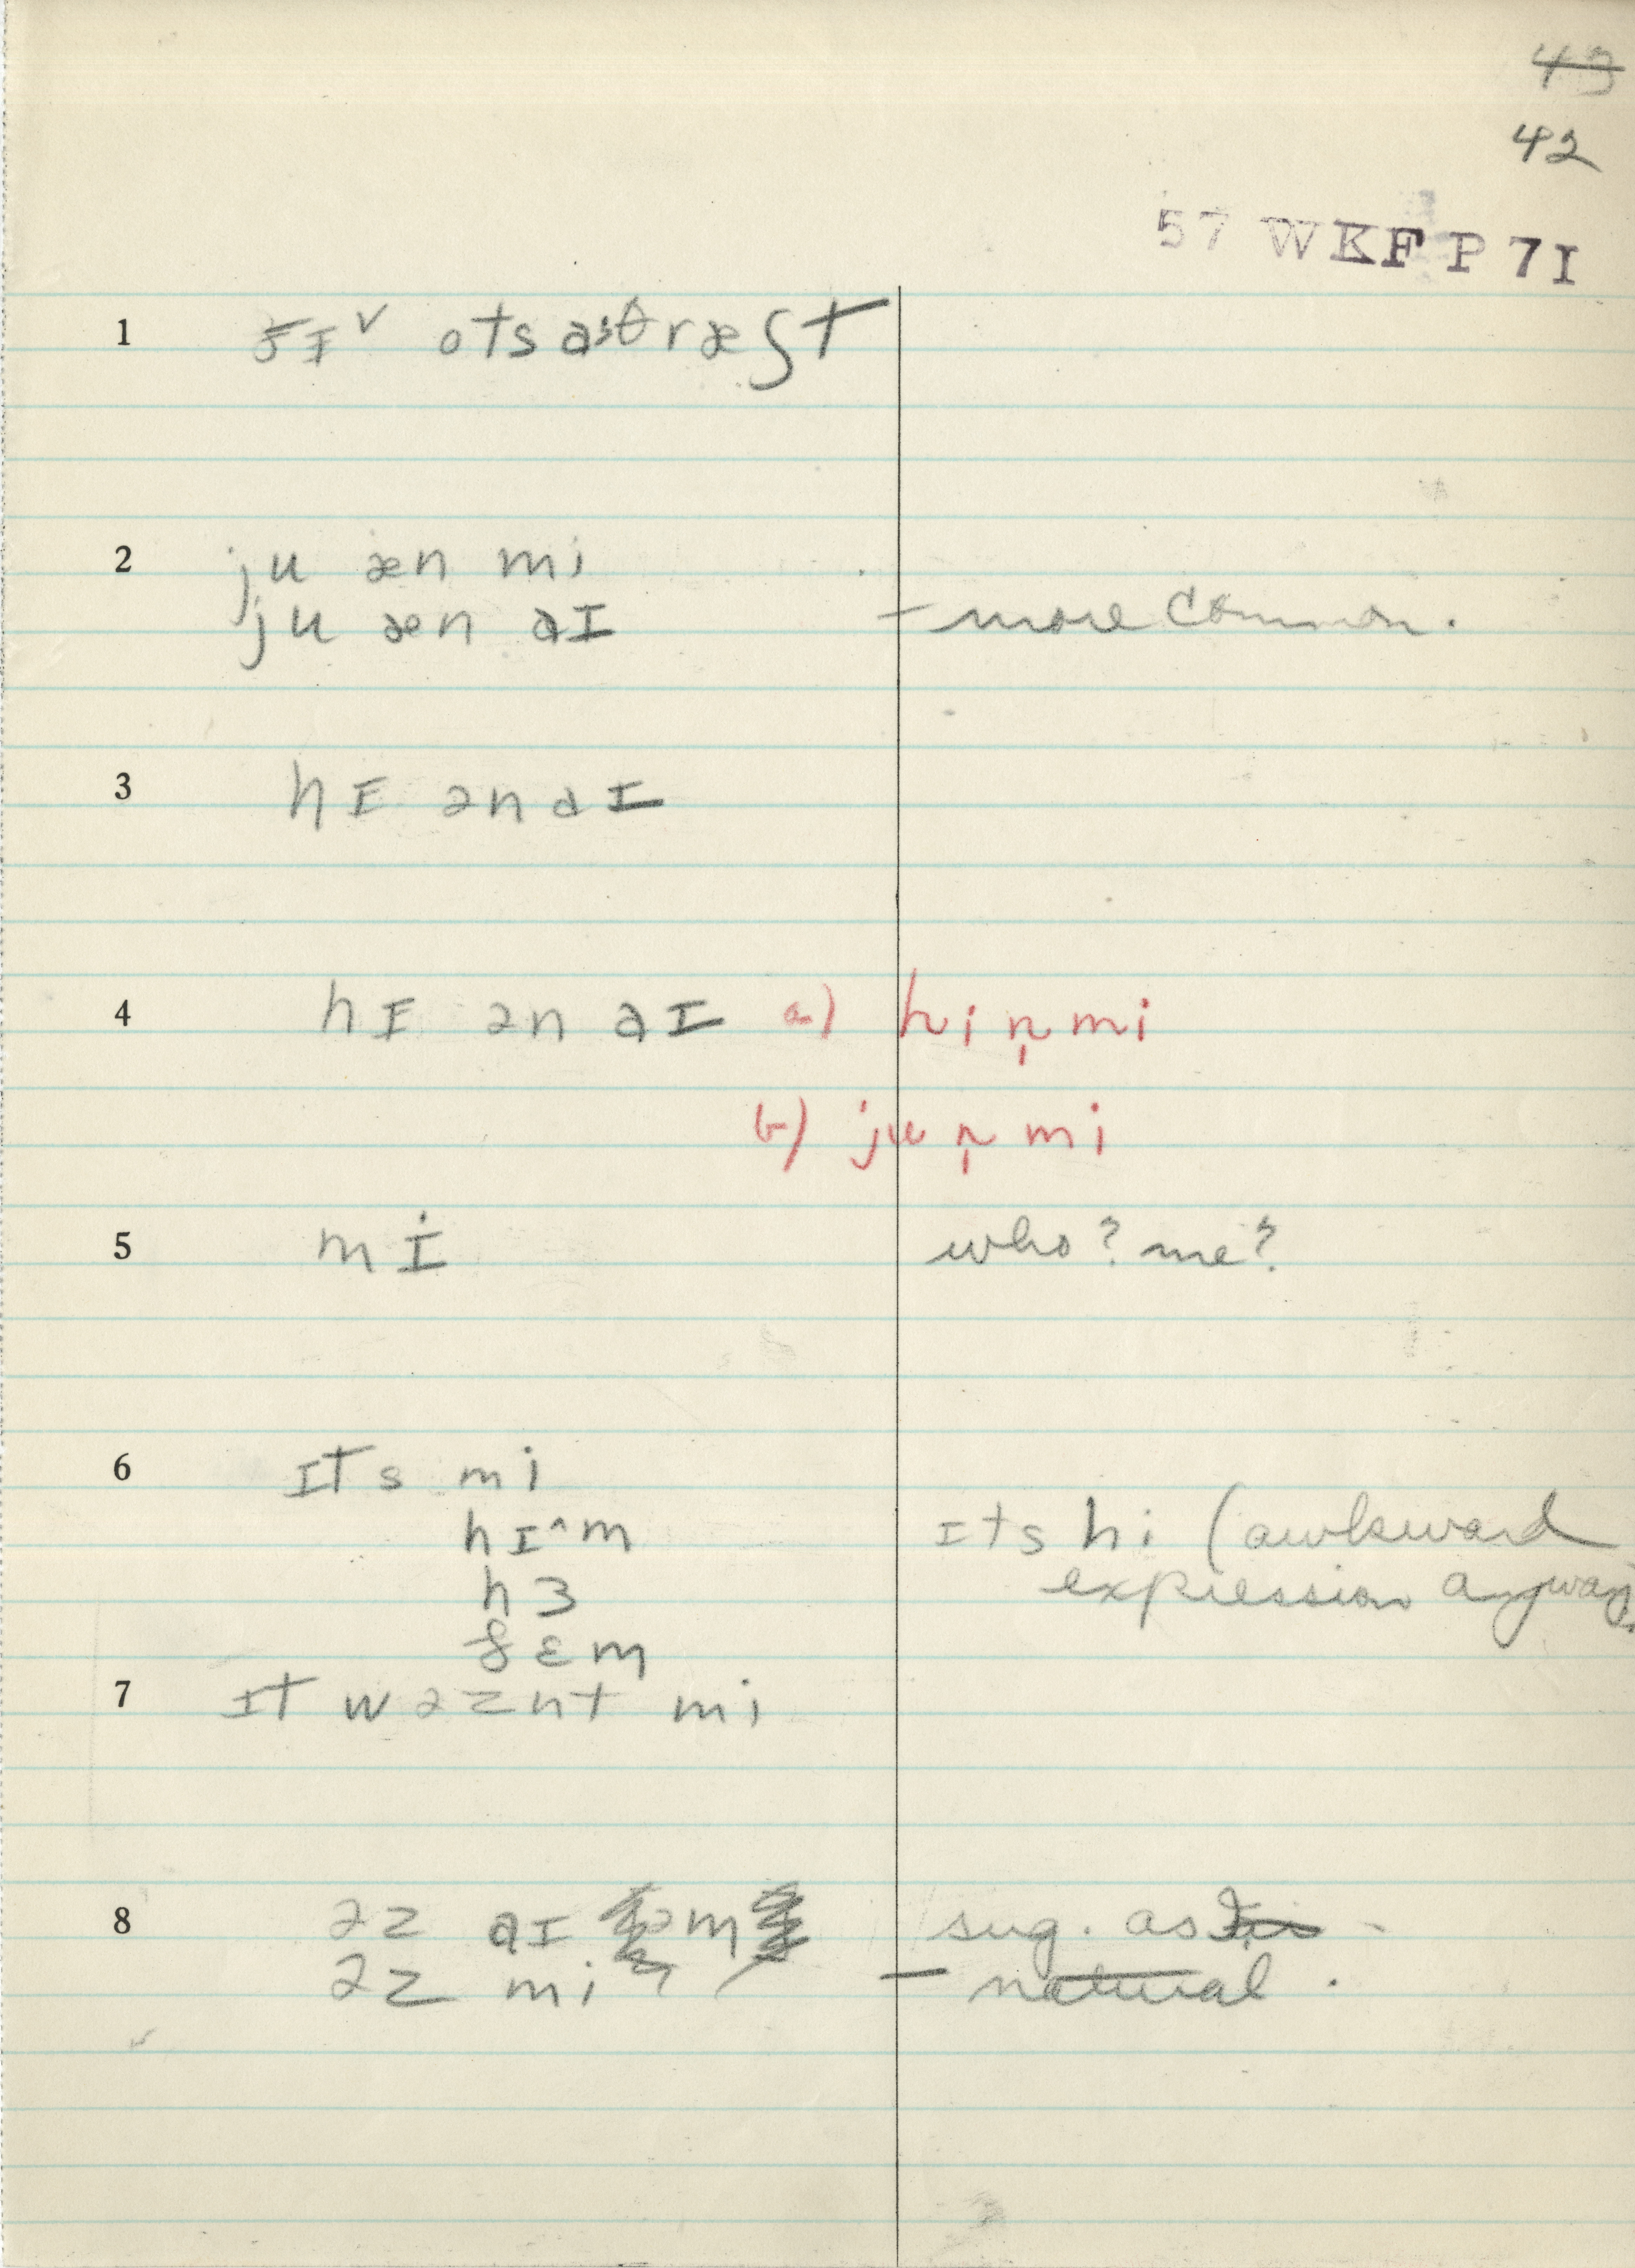 43
42
57 WKF P 7I
1 ðɪ˅ ots ə θræʃt
2 ju æn mi
ju æn aɪ – more common.
3 hɪ ən aɪ
4 hɪ ən aɪ a) hi n̩ mi
b) ju n̩ mi
5 mi who? me?
6 ɪts mi
hɪ^m ɪts hi (awkward
hɜ expression anyway
ðɛm
7 ɪt wəznt mi
8 əz aɪ m sug. as
əz mi – natural.